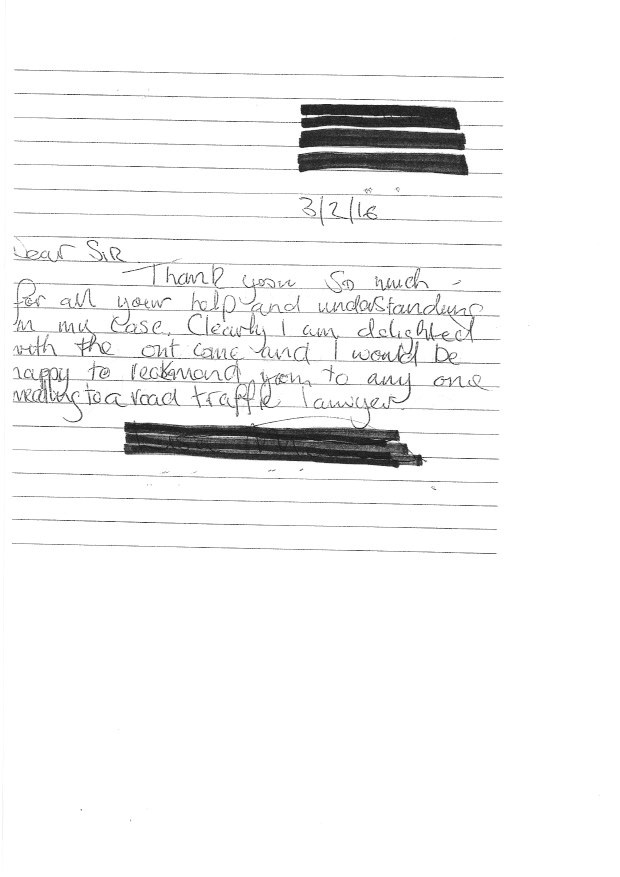 3/2/16
Dear Sir
Thank you so much
for all your help and understanding
in my case. Clearly I am delighted
with the out come and I would be
happy to reckmond you to any one
to a road traffic lawyer.